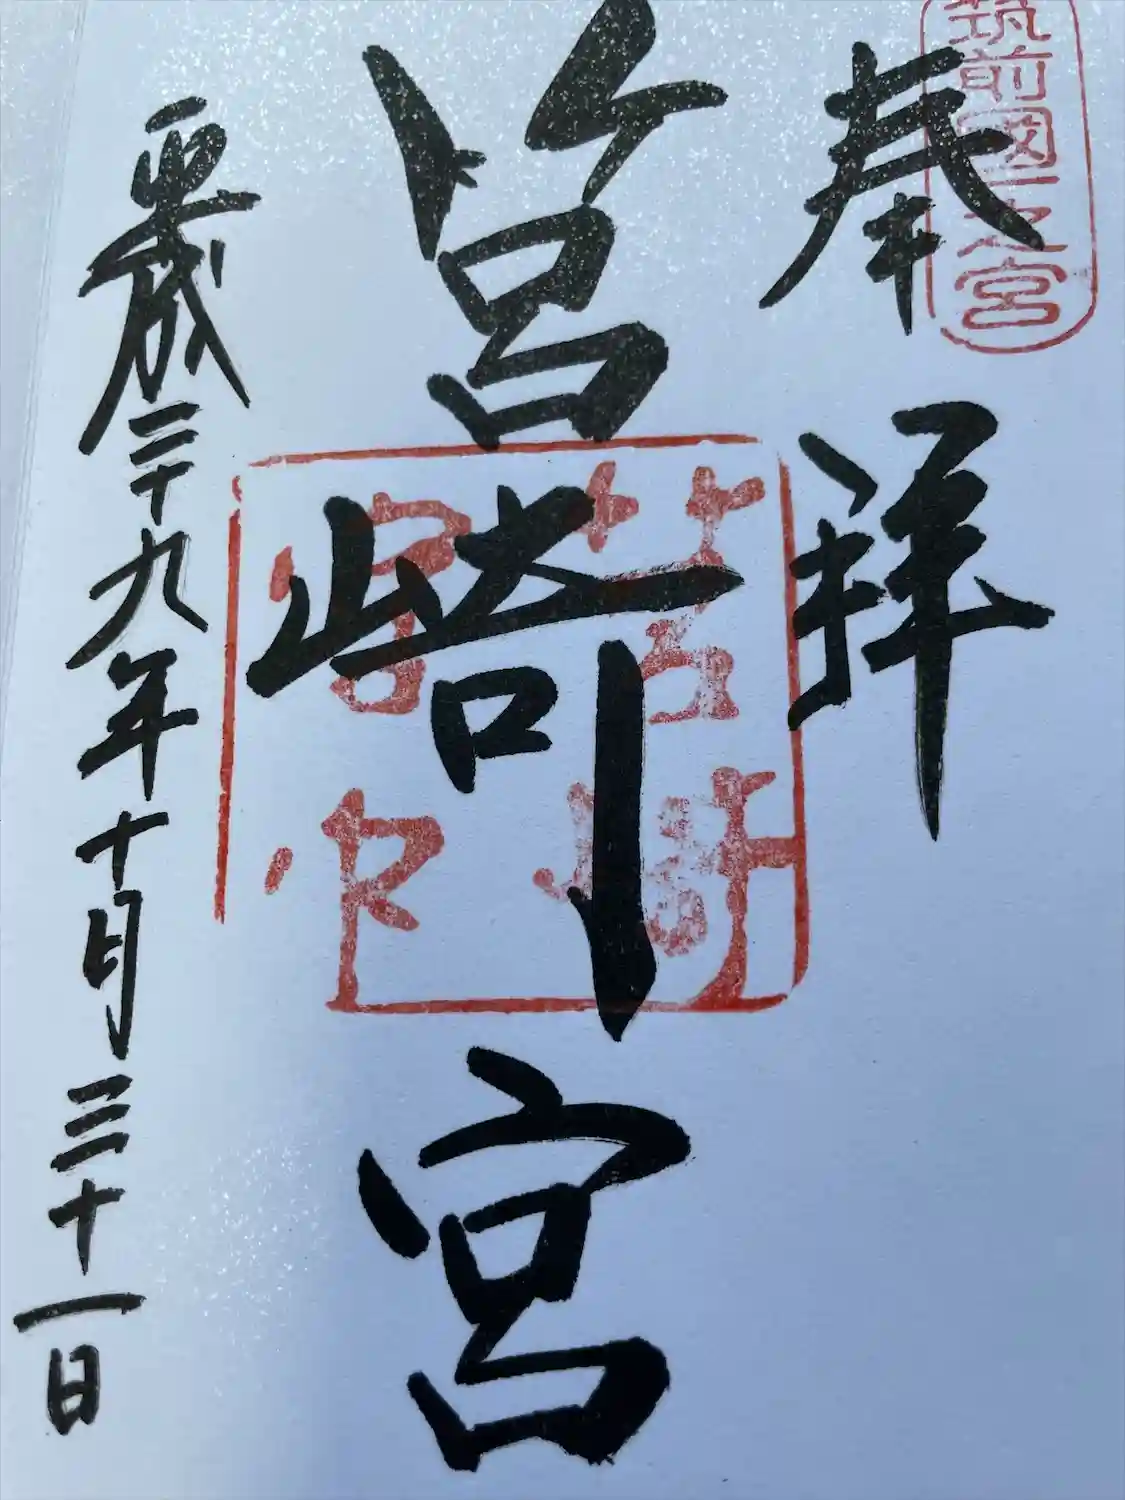 筑前國一之宮
奉拝
筥崎宮
平成二十九年十月三十一日